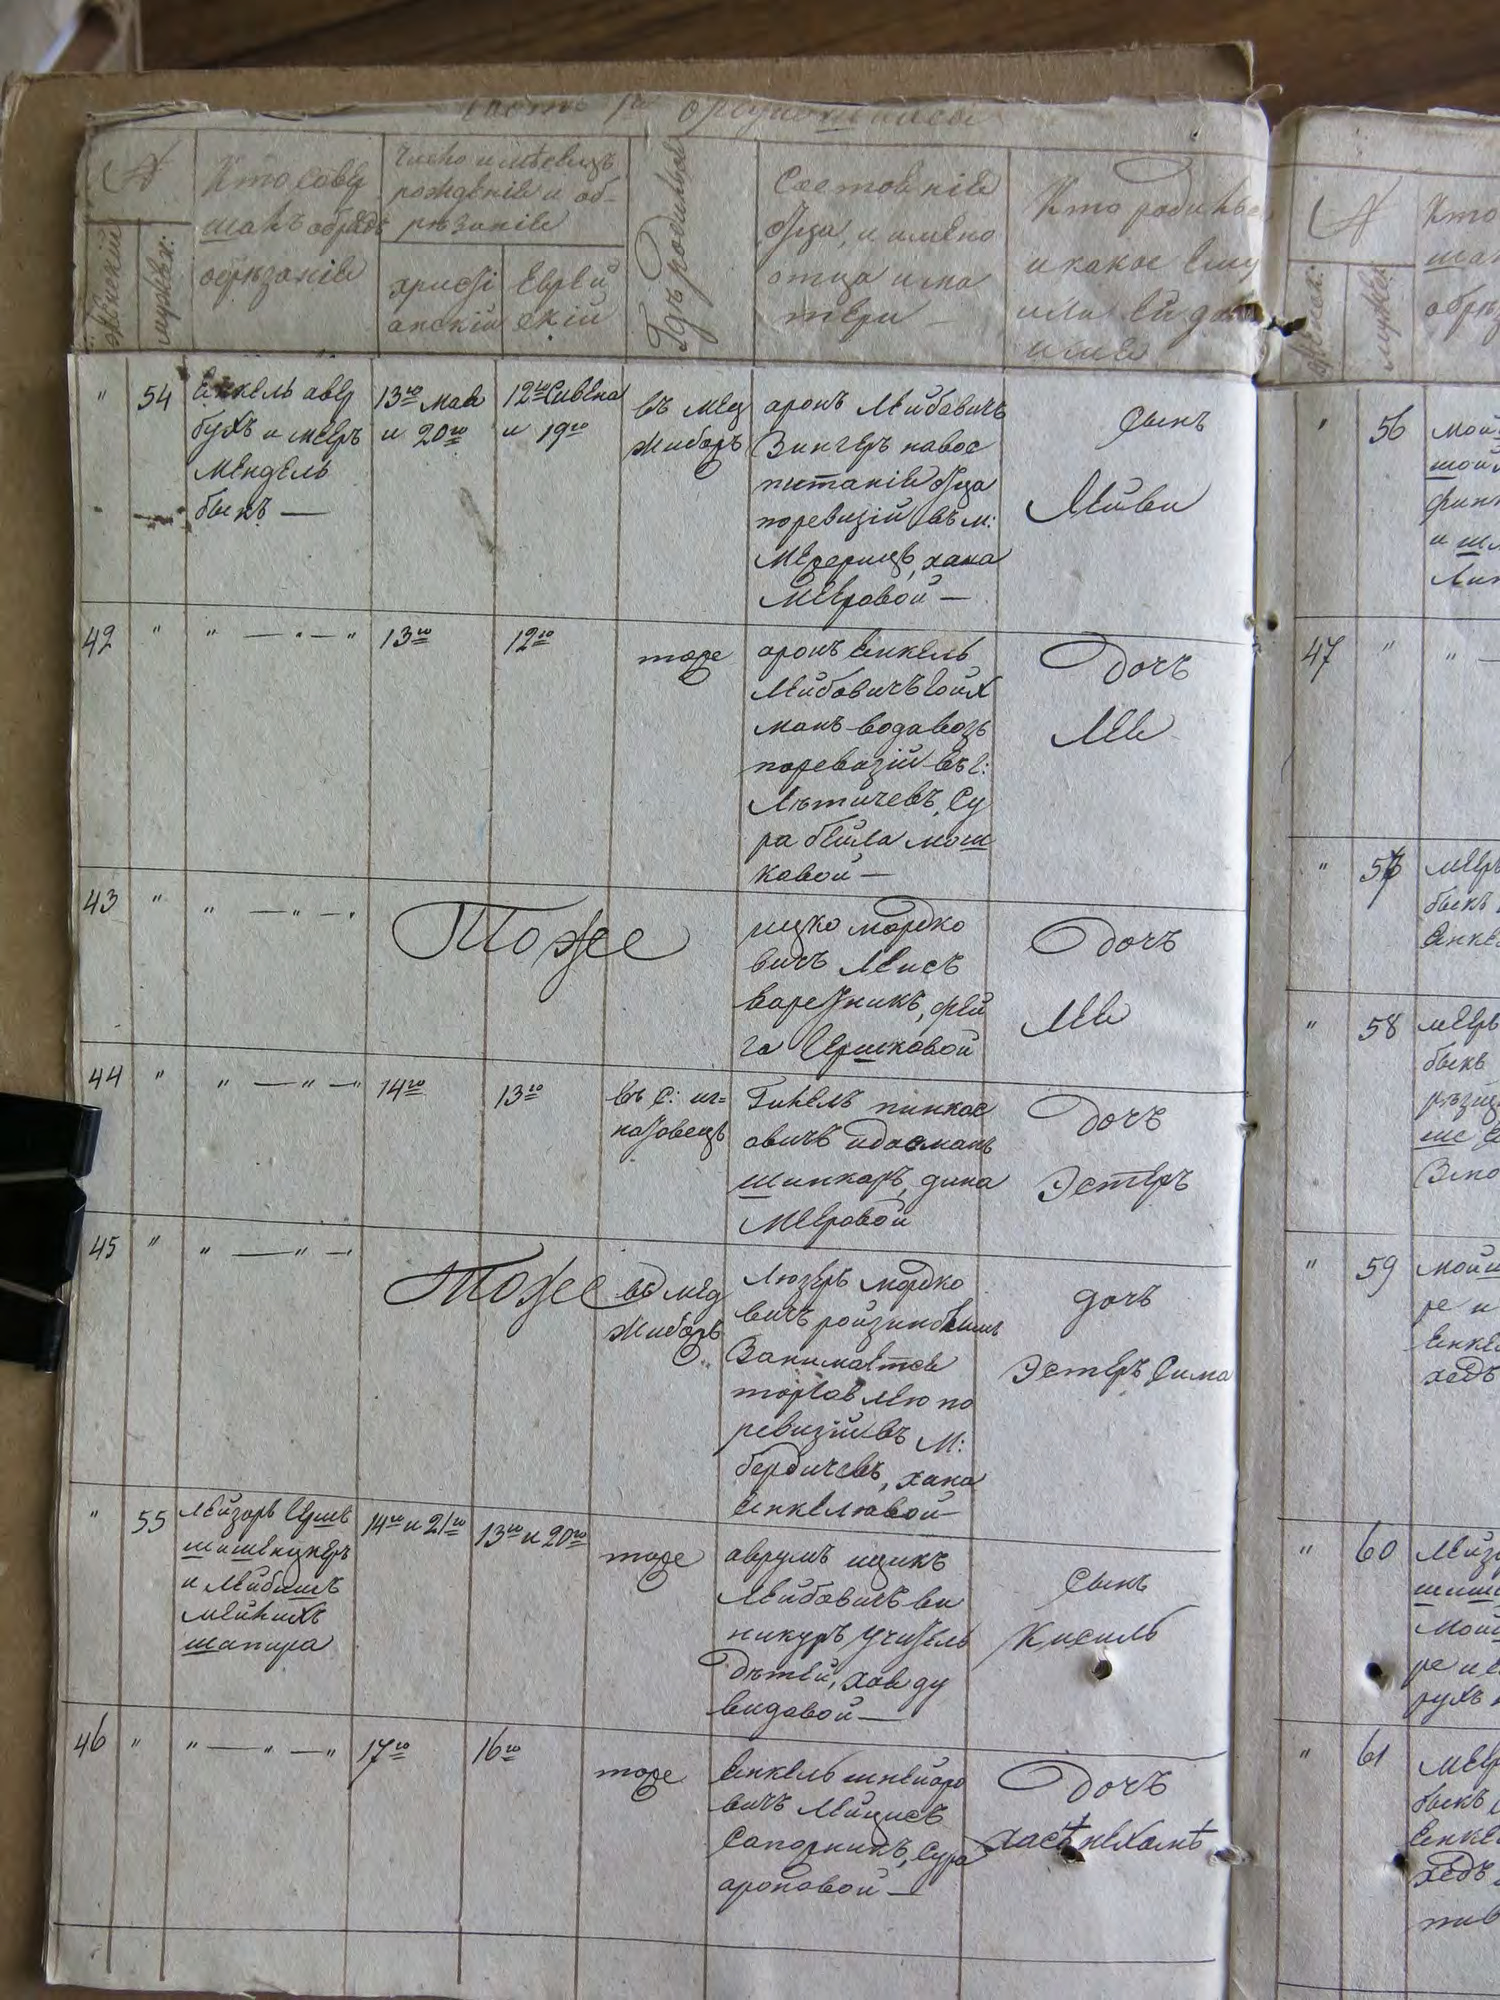 Часть 1я о родившихся
№
Женскій
мужск:
Кто совер
шалъ обрядъ
обрѣзанія
Число и мѣсяцъ
рожденія и об-
рѣзанія
христі
анскій
Еврей
скій
Гдѣ родился
Состояніе
Отца, и имена
отца и ма
тери —
Кто родился
и какое ему
или ей дано
имя
" 54
Янкель авер
бухъ и мееръ
мендель
быкъ —
13го мая
и 20го
12го Сивена
и 19го
въ мед
жибожъ
аронъ Лейбовичъ
Зингеръ навос
питаніи отца
поревизіи въ м:
межеричъ, хана
мееровой —
Сынъ
Лейви
42 " " — " — "
13го
12го
тоже
аронъ Янкель
Лейбовичъ гойх
манъ водавозъ
поревизіи въ г:
Лѣтичевѣ, Су
ра бейла мош
ковой —
Дочь
Лея
43 " " — " — "
Тоже
ицко мордко
вичъ Леисъ
варетникъ, фей
га Гершковой
Дочь
Лея
44 " " — " — "
14го
13го
въ с:
Гихель пинкас
овичъ
шинкаръ, дина
мееровой
Дочь
Эстеръ
45 " " — " —
Тоже
въ мед
жибожъ
Люзеръ мордко
вичъ
Занимается
торговлею по
ревизіи въ м:
бердичевъ, хана
Янкелювой —
дочь
Эстеръ Сима
" 55
Лейзоръ Герш
и Лейбишъ
шапира
14го и 21го
13го и 20го
тоже
аврумъ ицикъ
Лейбовичъ ви
никуръ учитель
дѣтей, хая ду
видовой —
Сынъ
Кисиль
46 " " — " — "
17го
16го
тоже
Янкель шнеиоро
вичъ
Сапожникъ, Сура
ароновой —
Дочь
хася нехамѣ
№
Женск:
мужск:
Кто
шал
обрѣз
" 56
мой
шой
фин
и ш
47 " "
" 57
меер
быкъ
Янке
" 58
меер
быкъ
" 59
мойш
ре и
Янке
" 60
Лейз
мой
ре и
рухъ
" 61
меер
быкъ
Янке